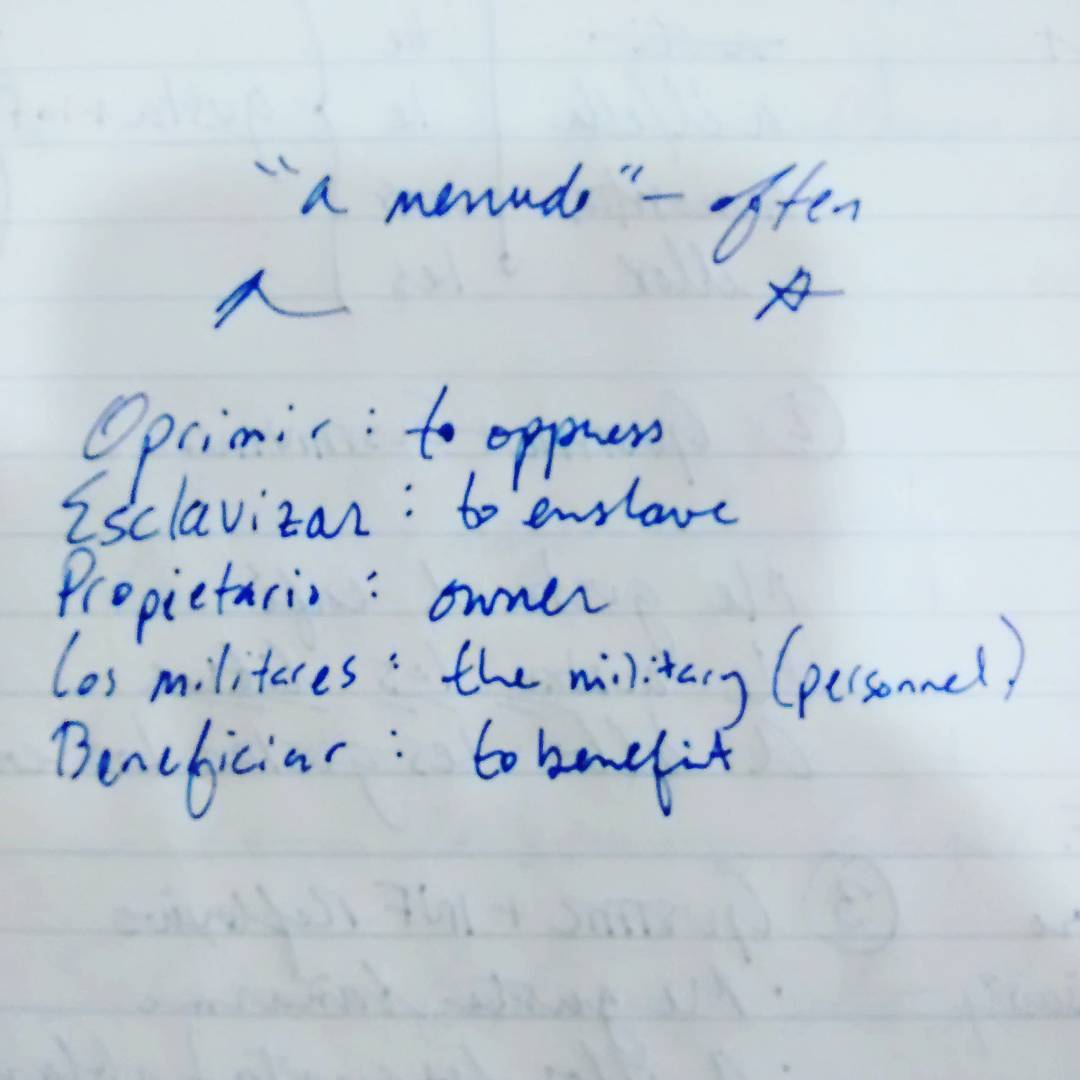 "a menudo" - often
Oprimir : to oppress
Esclavizar : to enslave
Propietario : owner
Los militares : the military (personnel)
Beneficiar : to benefit